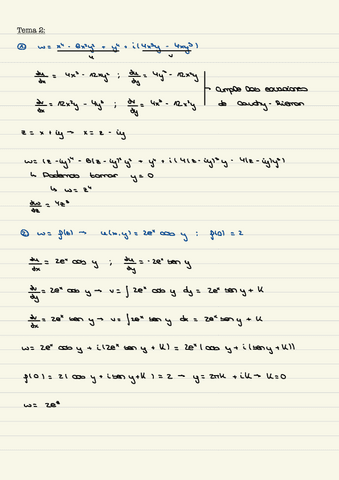 Tema 2:
① w = x⁴ - 6x²y² + y⁴ + i(4x³y - 4xy³)
u v
du/dx = 4x³ - 12xy² ; du/dy = 4y³ - 12x²y
Cumple las ecuaciones
de Cauchy-Rieman
dv/dx = 12x²y - 4y³ ; dv/dy = 4x³ - 12xy²
z = x + iy → x = z - iy
w = (z - iy)⁴ - 6(z - iy)²y² + y⁴ + i(4(z - iy)³y - 4(z - iy)y³)
↳ Podemos tomar y = 0
↳ w = z⁴
dw/dz = 4z³
② w = f(z) → u(x,y) = 2eˣ cos y ; f(0) = 2
du/dx = 2eˣ cos y ; du/dy = -2eˣ sen y
dv/dy = 2eˣ cos y → v = ∫ 2eˣ cos y dy = 2eˣ sen y + K
dv/dx = 2eˣ sen y → v = ∫ 2eˣ sen y dx = 2eˣ sen y + K
w = 2eˣ cos y + i(2eˣ sen y + K) = 2eˣ(cos y + i(sen y + K))
f(0) = 2(cos y + i sen y + K) = 2 → y = 2πK + iK → K = 0
w = 2eᶻ